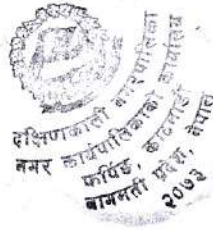 दक्षिणकाली नगरपालिका
नगर कार्यपालिकाको कार्यालय
फर्पिङ, काठमाडौं
बागमती प्रदेश, नेपाल
२०७३